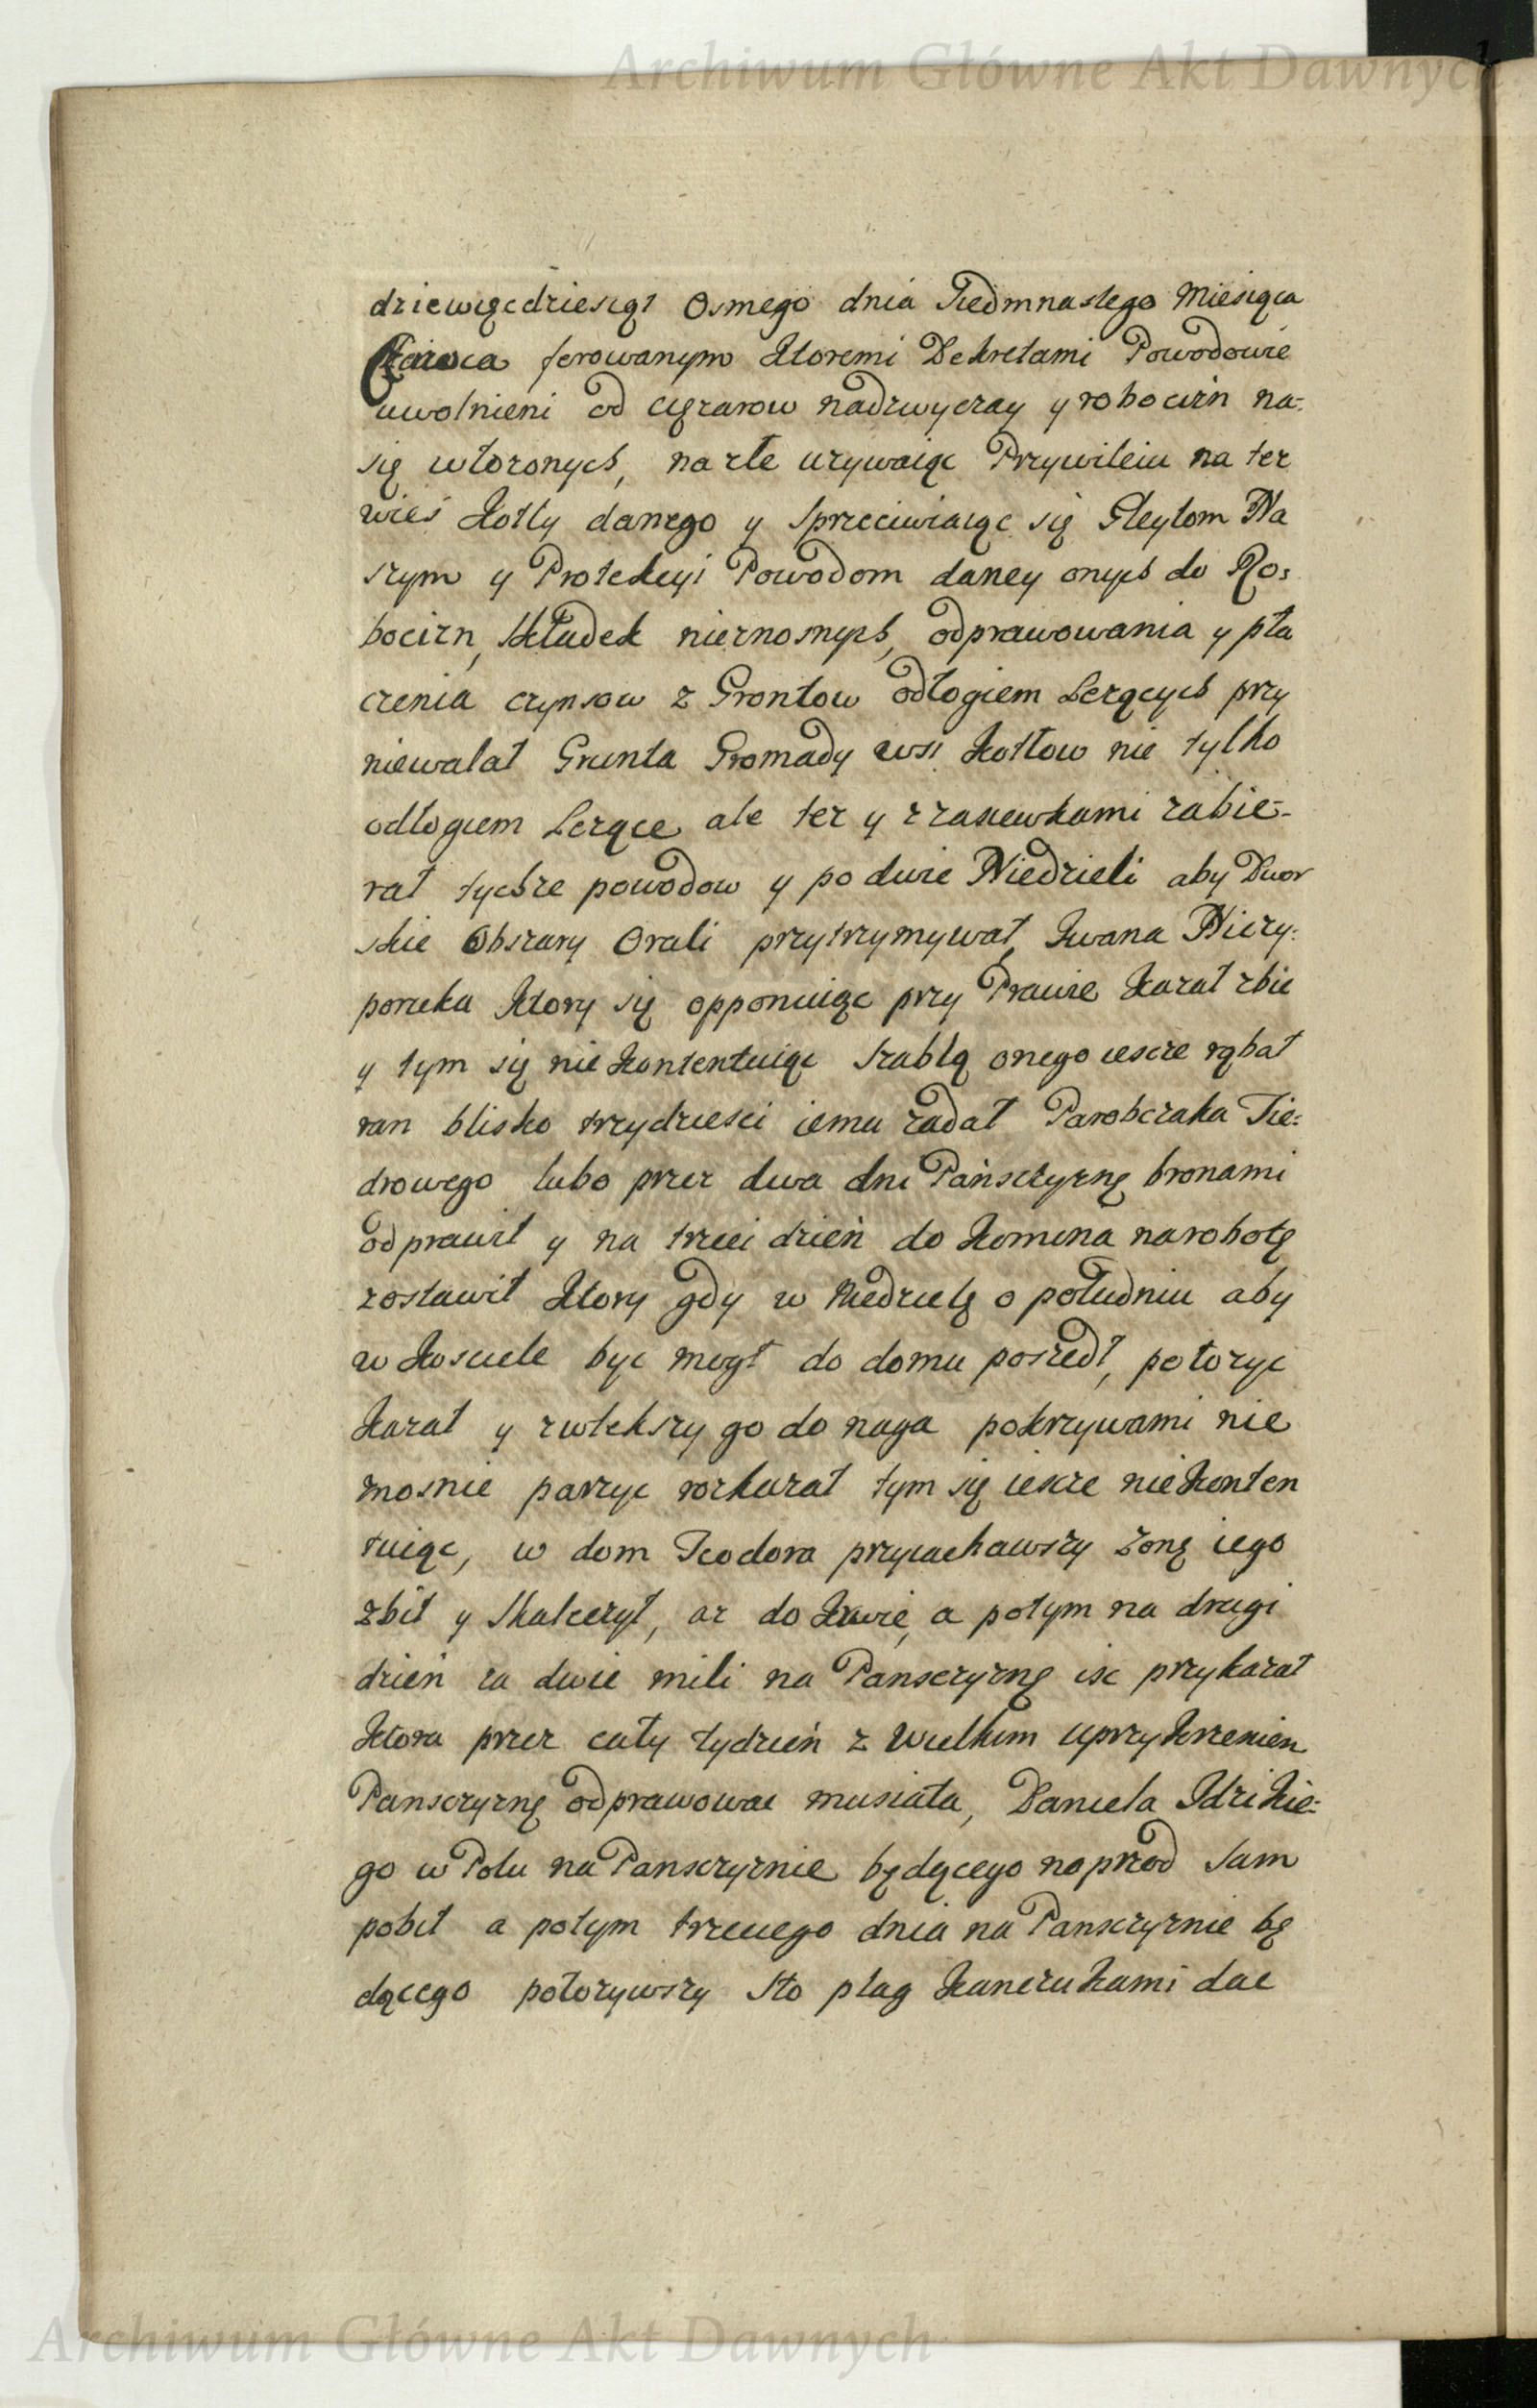 Archiwum Główne Akt Dawnych
dziewięcdziesiąt Osmego dnia Siedmnastego Miesiąca
Czerwca ferowanym Ktoremi Dekretami Powodowie
uwolnieni od cięzarow nadzwyczay y robocizn na-
się włozonych, na złe uzywaiąc Przywileiu na tez
wieś Kotły danego y sprzeciwiaiąc się Gleytom Na
szym y Protekcyi Powodom daney onych do Ro-
bocizn, składek nieznosnych, odprawowania y pła
czenia czynsow z Grontow odłogiem Lezących przy
niewalał Grunta Gromady wsi Kotłow nie tylko
odłogiem Lezące ale tez y z zasiewkami zabie-
rał tychze powodow y po dwie Niedzieli aby Dwor
skie Obszary Orali przytrzymywał, Iwana Niczy-
poruka Ktory się opponuiąc przy Prawie Kazał zbic
y tym się nie Kontentuiąc szablą onego iescze rąbał
ran blisko trzydziesci iemu zadał Parobczaka Fie-
drowego lubo przez dwa dni Pańsczyznę bronami
odprawił y na trzeci dzień do Komina na robotę
zostawił Ktory gdy w Niedzielę o południu aby
w Kosciele byc mogł do domu poszedł, połozyc
Kazał y zwlekszy go do naga pokrzywami nie
znosnie parzyc rozkazał tym się iescze nie Konten
tuiąc, w dom Teodora przyiachawszy Zonę iego
zbił y skaleczył, az do Krwie, a potym na drugi
dzień za dwie mili na Pansczyznę isc przykazał
Ktora przez cały tydzień z wielkim uprzykrzeniem
Pansczyznę odprawowac musiała, Daniela Idzikie-
go w Polu na Pansczyznie będącego naprzod sam
pobił a potym trzeciego dnia na Pansczyznie bę
dącego połozywszy sto plag Kanczukami dac
Archiwum Główne Akt Dawnych